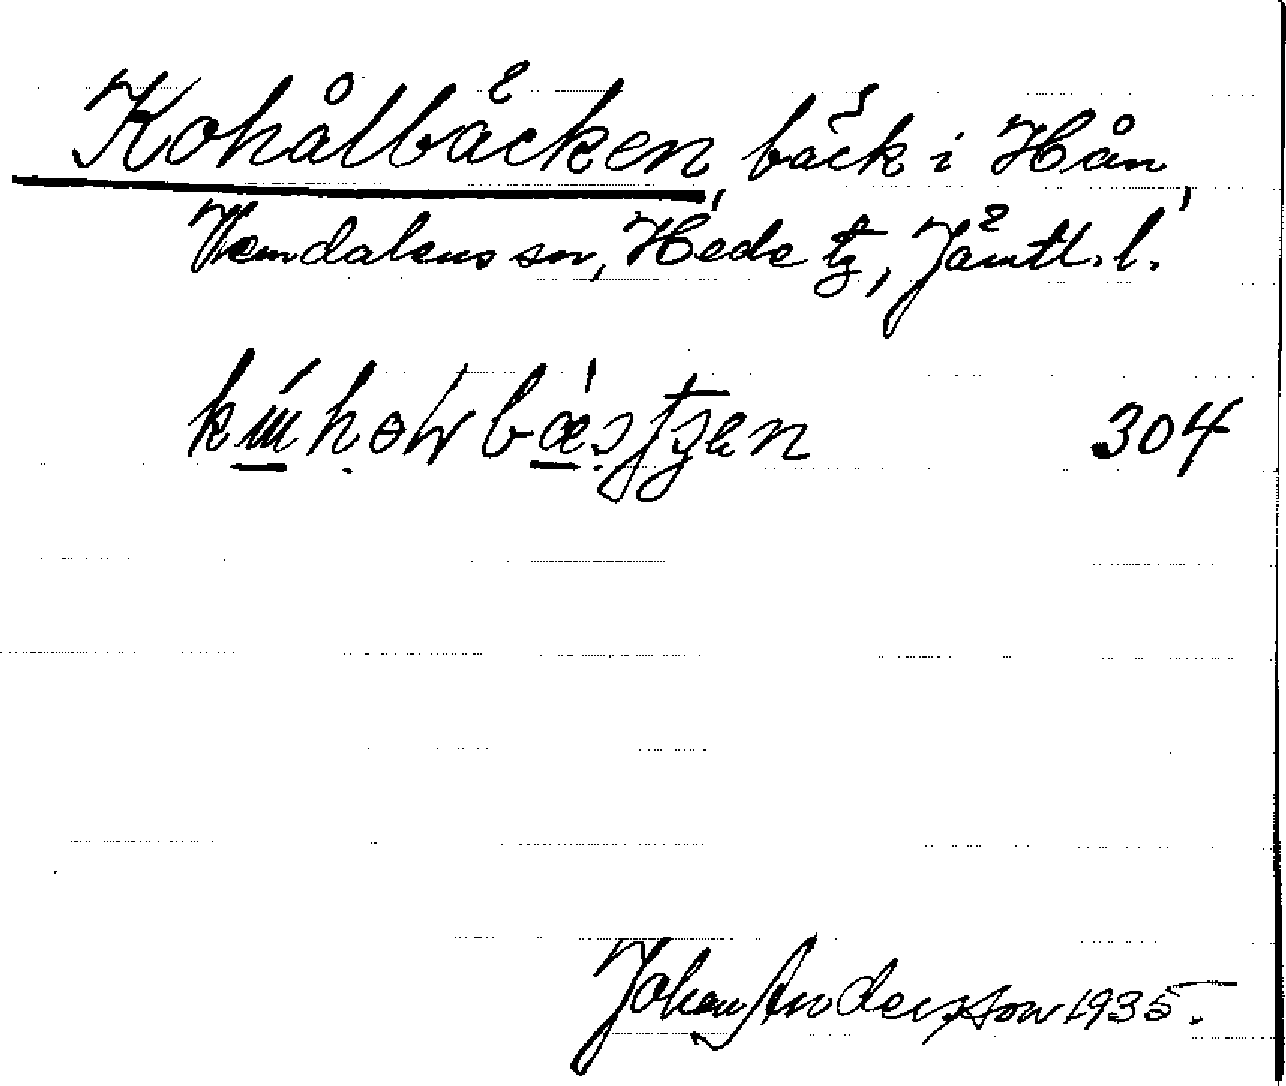 Kohålbäcken, bäck i Hån,
Vemdalens sn, Hede tg, Jämtl. l.
304
Johan Andersson 1935.